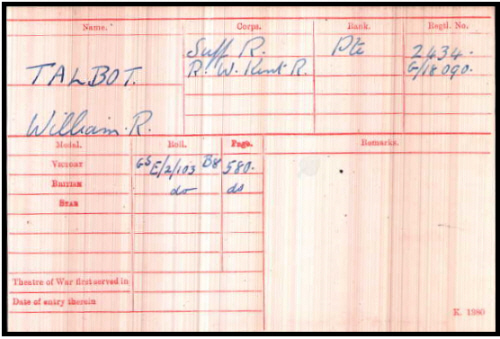 Name. Corps. Rank. Regtl. No.
Suff R. Pte 2434.
TALBOT. R. W. Kent R. G/18090.
William. R.
Medal. Roll. Page. Remarks.
VICTORY E/2/103 B8 580.
BRITISH do do
STAR
Theatre of War first served in
Date of entry therein
K. 1380